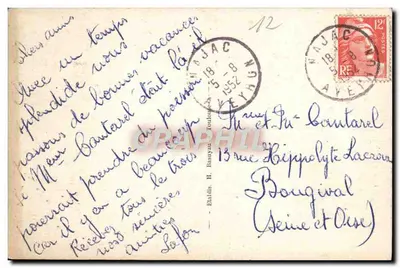 chers amis
Avec un temps
splendide nous
passons de bonnes vacances.
Si Mr Cantarel était là il
pourrait prendre du poisson
Car il y en a beaucoup
Recevez tous les trois
nos sincères
amitiés
Lafon
12
NAJAC
18 -
5 - 8
1952
AVEYRON
NAJAC
18
5 - 8
AVEYRON
12F
RF
Mme et Mr Cantarel
13 rue Hippolyte Lacroix
Bougival
(Seine et Oise)